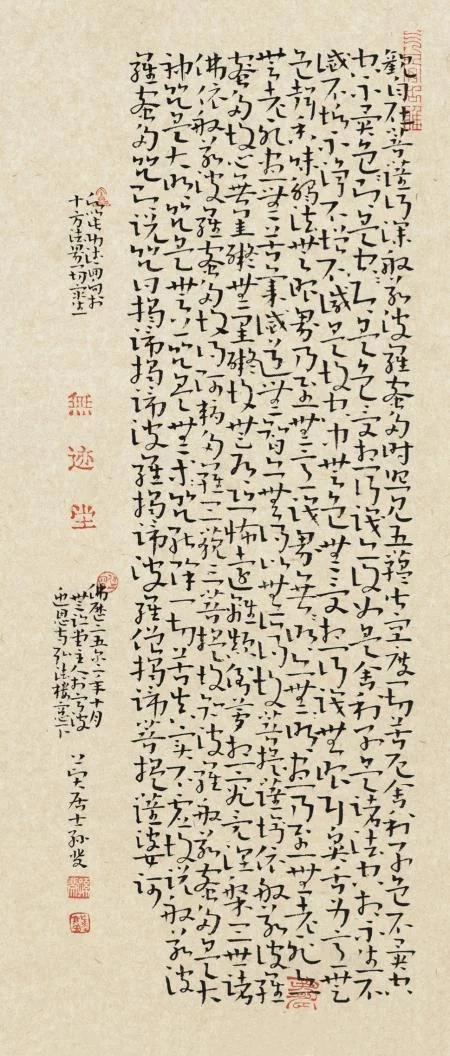 觀自在菩薩行深般若波羅蜜多時照見五蘊皆空度一切苦厄舍利子色不異空
空不異色色即是空空即是色受想行識亦復如是舍利子是諸法空相不生不
滅不垢不淨不增不減是故空中無色無受想行識無眼耳鼻舌身意無
色聲香味觸法無眼界乃至無意識界無無明亦無無明盡乃至無老死亦
無老死盡無苦集滅道無智亦無得以無所得故菩提薩埵依般若波羅
蜜多故心無罣礙無罣礙故無有恐怖遠離顛倒夢想究竟涅槃三世諸
佛依般若波羅蜜多故得阿耨多羅三藐三菩提故知般若波羅蜜多是大
神咒是大明咒是無上咒是無等等咒能除一切苦真實不虛故說般若波
羅蜜多咒即說咒曰揭諦揭諦波羅揭諦波羅僧揭諦菩提薩婆訶
以此功法回向於
十方法界一切眾生
無迹
佛曆二五年十月
主人於寧波
寺弘法樓下
居士孫